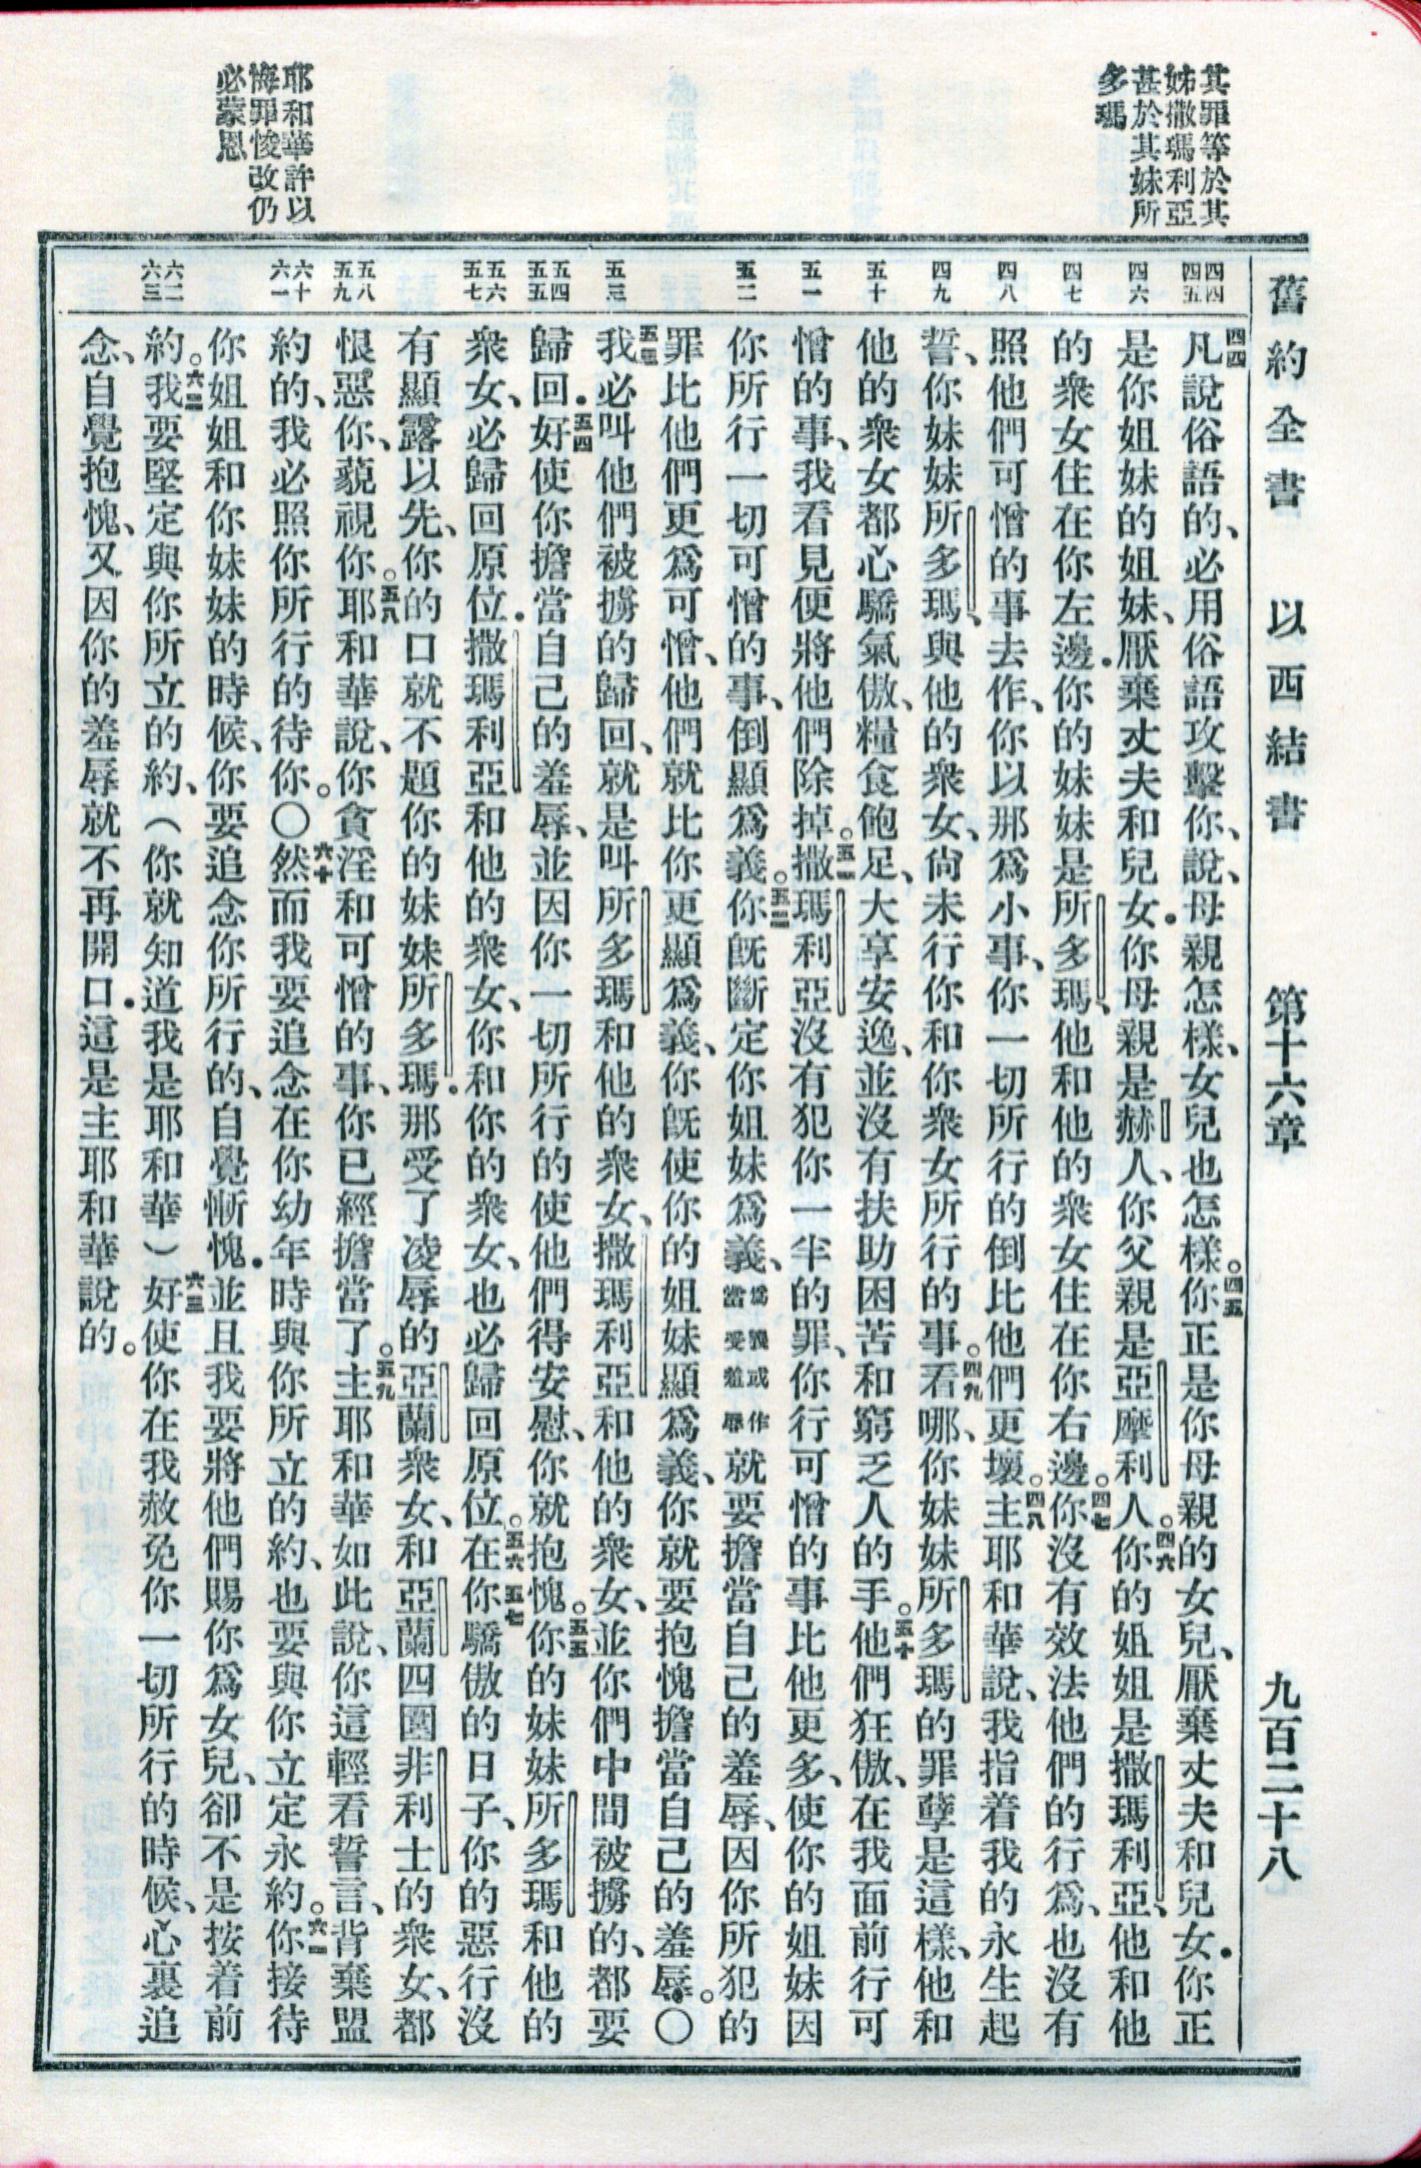 舊約全書　以西結書　第十六章　九百二十八
其罪等於其
姊撒瑪利亞
甚於其妹所
多瑪
耶和華許以
悔罪悛改仍
必蒙恩
四四
四五
四六
四七
四八
四九
五十
五一
五二
五三
五四
五五
五六
五七
五八
五九
六十
六一
六二
六三
四四凡說俗語的、必用俗語攻擊你、說、母親怎樣、女兒也怎樣。四五你正是你母親的女兒、厭棄丈夫和兒女．你正
是你姐妹的姐妹、厭棄丈夫和兒女．你母親是赫人、你父親是亞摩利人。四六你的姐姐是撒瑪利亞、他和他
的衆女住在你左邊．你的妹妹是所多瑪、他和他的衆女住在你右邊。四七你沒有效法他們的行爲、也沒有
照他們可憎的事去作、你以那爲小事、你一切所行的倒比他們更壞。四八主耶和華說、我指着我的永生起
誓、你妹妹所多瑪、與他的衆女、尙未行你和你衆女所行的事。四九看哪、你妹妹所多瑪的罪孽是這樣、他和
他的衆女都心驕氣傲、糧食飽足、大享安逸、並沒有扶助困苦和窮乏人的手。五十他們狂傲、在我面前行可
憎的事、我看見便將他們除掉。五一撒瑪利亞沒有犯你一半的罪、你行可憎的事比他更多、使你的姐妹因
你所行一切可憎的事、倒顯爲義。五二你旣斷定你姐妹爲義、爲義或作當受羞辱就要擔當自己的羞辱、因你所犯的
罪比他們更爲可憎、他們就比你更顯爲義、你旣使你的姐妹顯爲義、你就要抱愧擔當自己的羞辱。〇
五三我必叫他們被擄的歸回、就是叫所多瑪和他的衆女、撒瑪利亞和他的衆女、並你們中間被擄的、都要
歸回．五四好使你擔當自己的羞辱、並因你一切所行的使他們得安慰、你就抱愧。五五你的妹妹所多瑪和他的
衆女、必歸回原位．撒瑪利亞和他的衆女、你和你的衆女、也必歸回原位。五六在你五七驕傲的日子、你的惡行沒
有顯露以先、你的口就不題你的妹妹所多瑪．那受了凌辱的亞蘭衆女、和亞蘭四圍非利士的衆女、都
恨惡你、藐視你。五八耶和華說、你貪淫和可憎的事、你已經擔當了。五九主耶和華如此說、你這輕看誓言、背棄盟
約的、我必照你所行的待你。〇六十然而我要追念在你幼年時與你所立的約、也要與你立定永約。六一你接待
你姐姐和你妹妹的時候、你要追念你所行的、自覺慚愧．並且我要將他們賜你爲女兒、卻不是按着前
約。六二我要堅定與你所立的約、（你就知道我是耶和華）六三好使你在我赦免你一切所行的時候、心裏追
念、自覺抱愧、又因你的羞辱就不再開口．這是主耶和華說的。